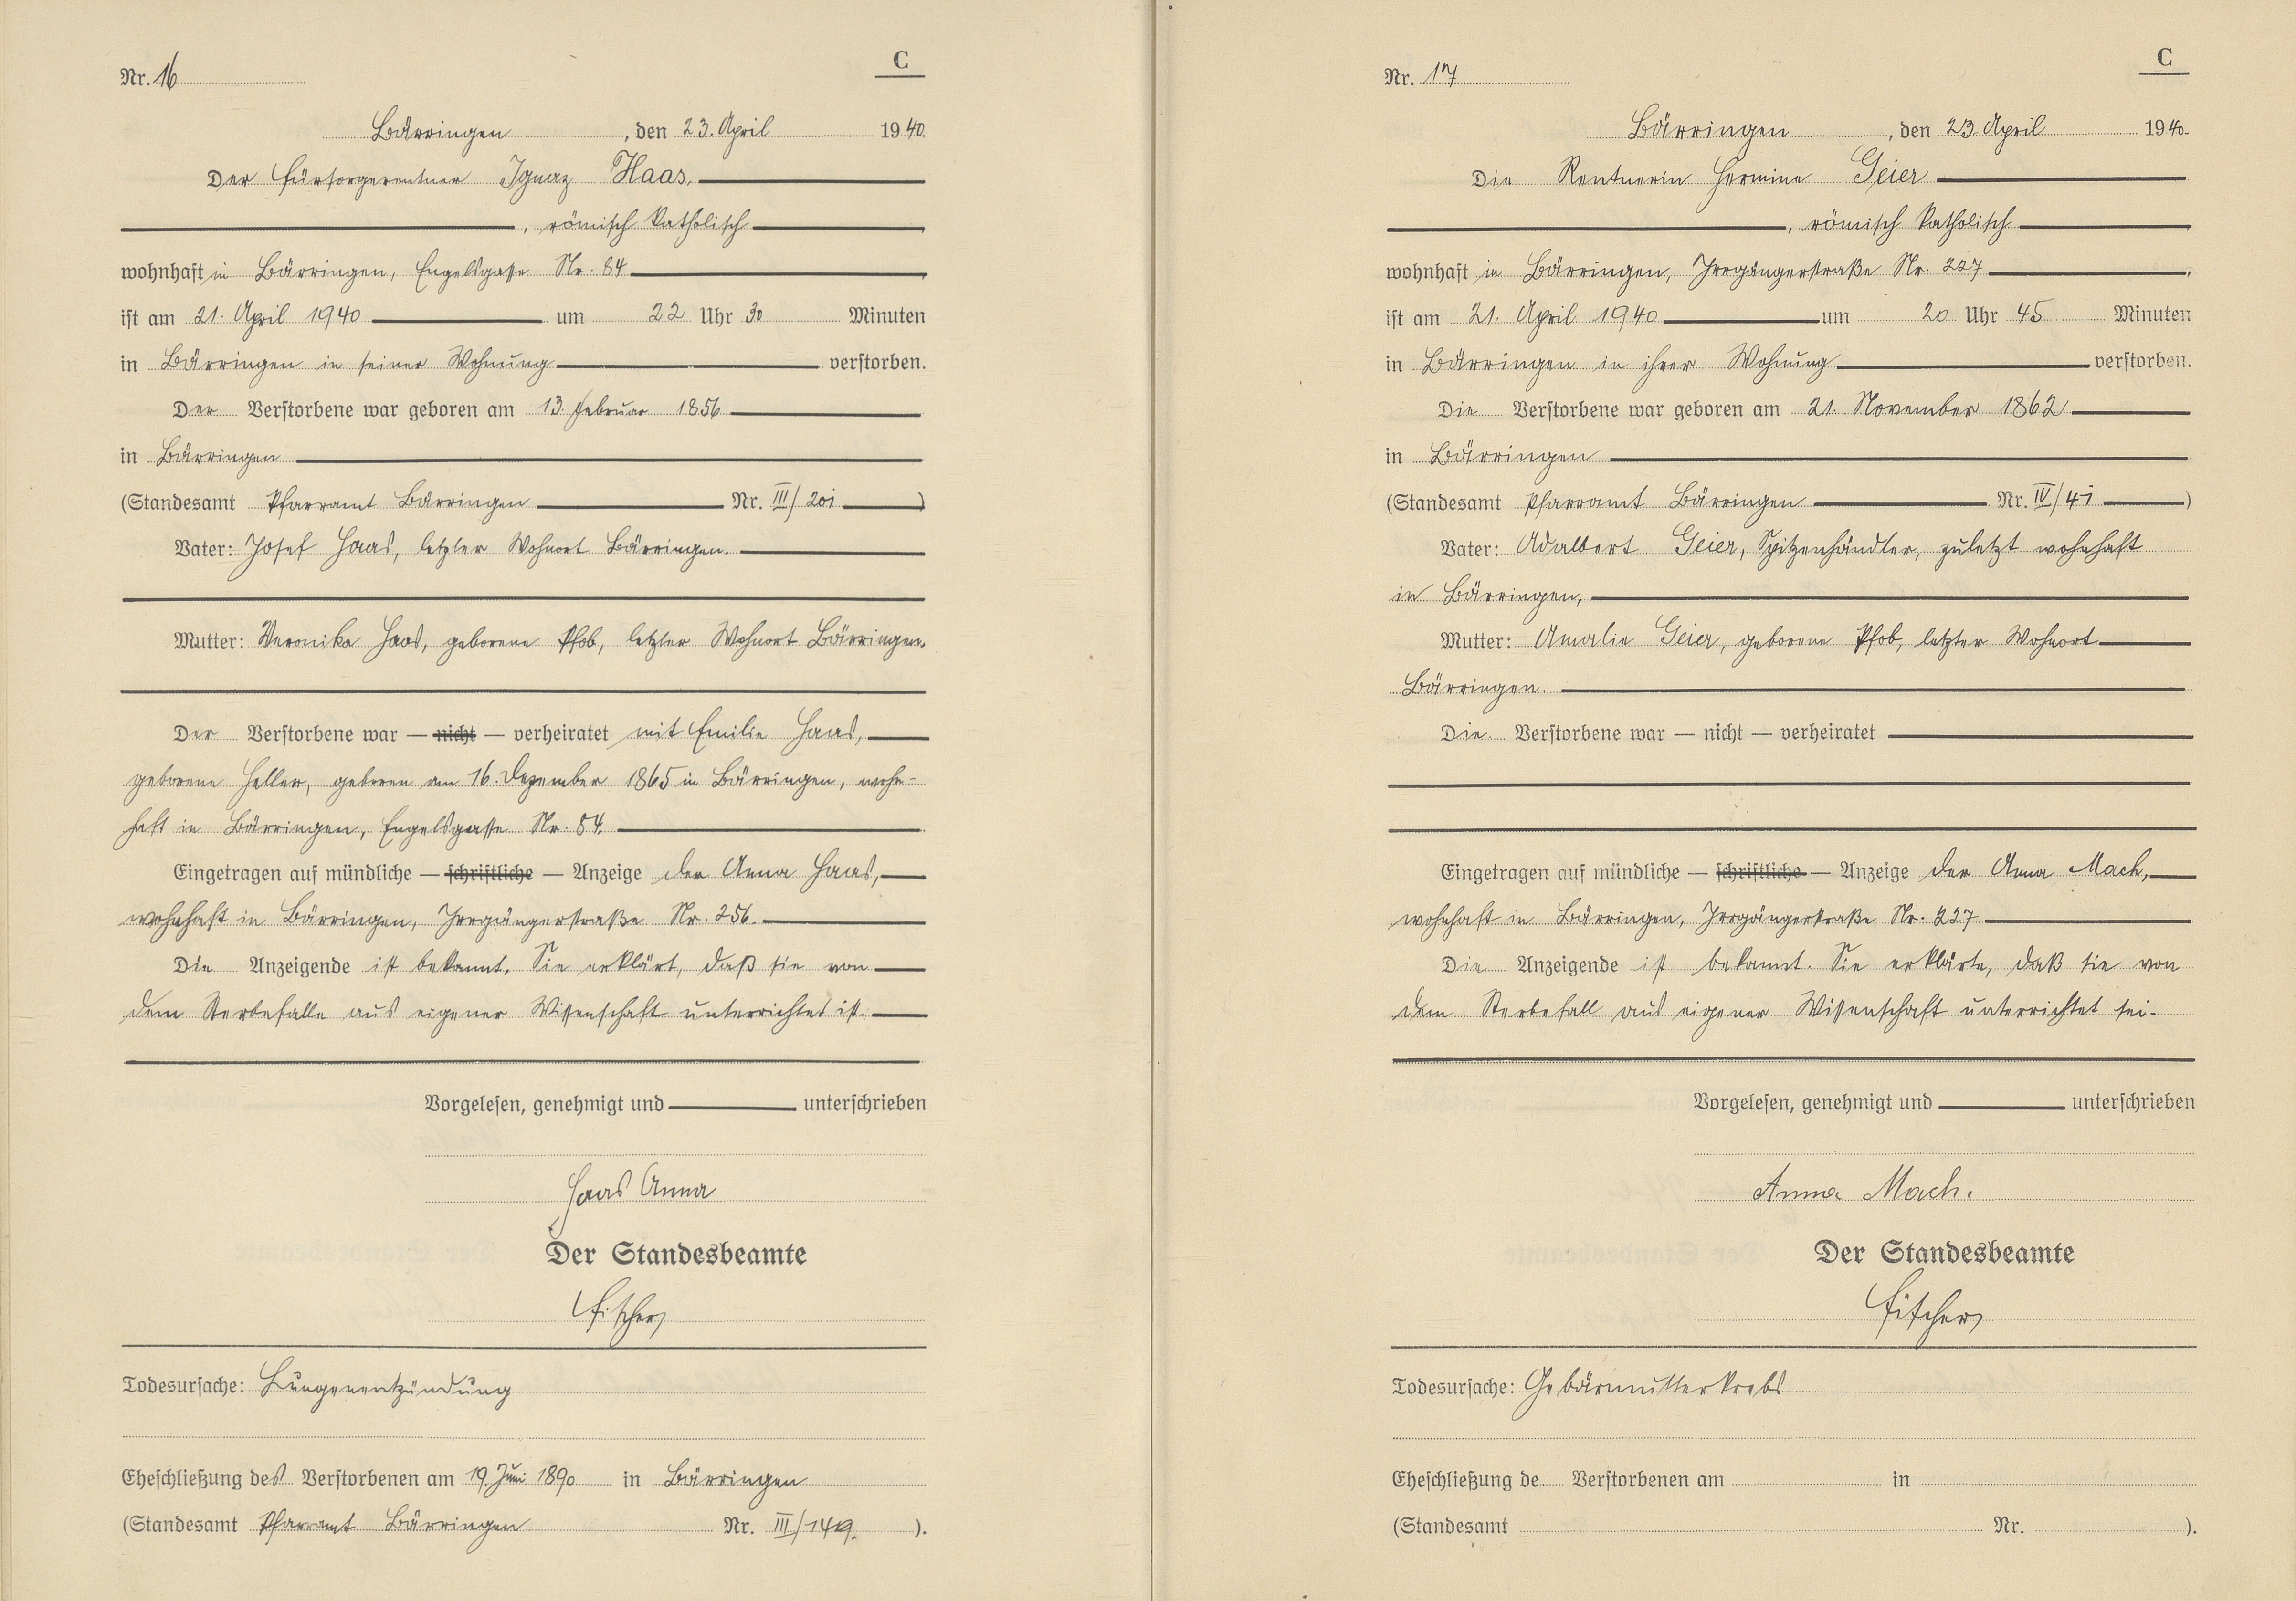 C
Nr. 16
Bärringen, den 23. April 1940.
Der Fürsorgerentner Ignaz Haas,
, römisch katholisch
wohnhaft in Bärringen, Engelsgasse Nr. 84
ist am 21. April 1940 um 22 Uhr 30 Minuten
in Bärringen in seiner Wohnung verstorben.
Der Verstorbene war geboren am 13. Februar 1856
in Bärringen
(Standesamt Pfarramt Bärringen Nr. III/201)
Vater: Josef Haas, letzter Wohnort Bärringen.
Mutter: Veronika Haas, geborene Pfob, letzter Wohnort Bärringen.
Der Verstorbene war — nicht — verheiratet mit Emilie Haas,
geborene Heller, geboren am 16. Dezember 1865 in Bärringen, wohn-
haft in Bärringen, Engelsgasse Nr. 84.
Eingetragen auf mündliche — schriftliche — Anzeige der Anna Haas,
wohnhaft in Bärringen, Irrgängerstraße Nr. 256.
Die Anzeigende ist bekannt. Sie erklärt, daß sie von
dem Sterbefalle aus eigener Wissenschaft unterrichtet ist.
Vorgelesen, genehmigt und unterschrieben
Haas Anna
Der Standesbeamte
Fischer
Todesursache: Lungenentzündung
Eheschließung des Verstorbenen am 19. Juni 1890 in Bärringen
(Standesamt Pfarramt Bärringen Nr. III/149.).
C
Nr. 17
Bärringen, den 23. April 1940.
Die Rentnerin Hermine Geier
, römisch katholisch
wohnhaft in Bärringen, Irrgängerstraße Nr. 227
ist am 21. April 1940 um 20 Uhr 45 Minuten
in Bärringen in ihrer Wohnung verstorben.
Die Verstorbene war geboren am 21. November 1862
in Bärringen
(Standesamt Pfarramt Bärringen Nr. IV/41)
Vater: Adalbert Geier, Spitzenhändler, zuletzt wohnhaft
in Bärringen,
Mutter: Amalie Geier, geborene Pfob, letzter Wohnort
Bärringen.
Die Verstorbene war — nicht — verheiratet
Eingetragen auf mündliche — schriftliche — Anzeige der Anna Mach,
wohnhaft in Bärringen, Irrgängerstraße Nr. 227
Die Anzeigende ist bekannt. Sie erklärte, daß sie von
dem Sterbefall aus eigener Wissenschaft unterrichtet sei.
Vorgelesen, genehmigt und unterschrieben
Anna Mach.
Der Standesbeamte
Fischer
Todesursache: Gebärmutterkrebs
Eheschließung de Verstorbenen am in
(Standesamt Nr. ).